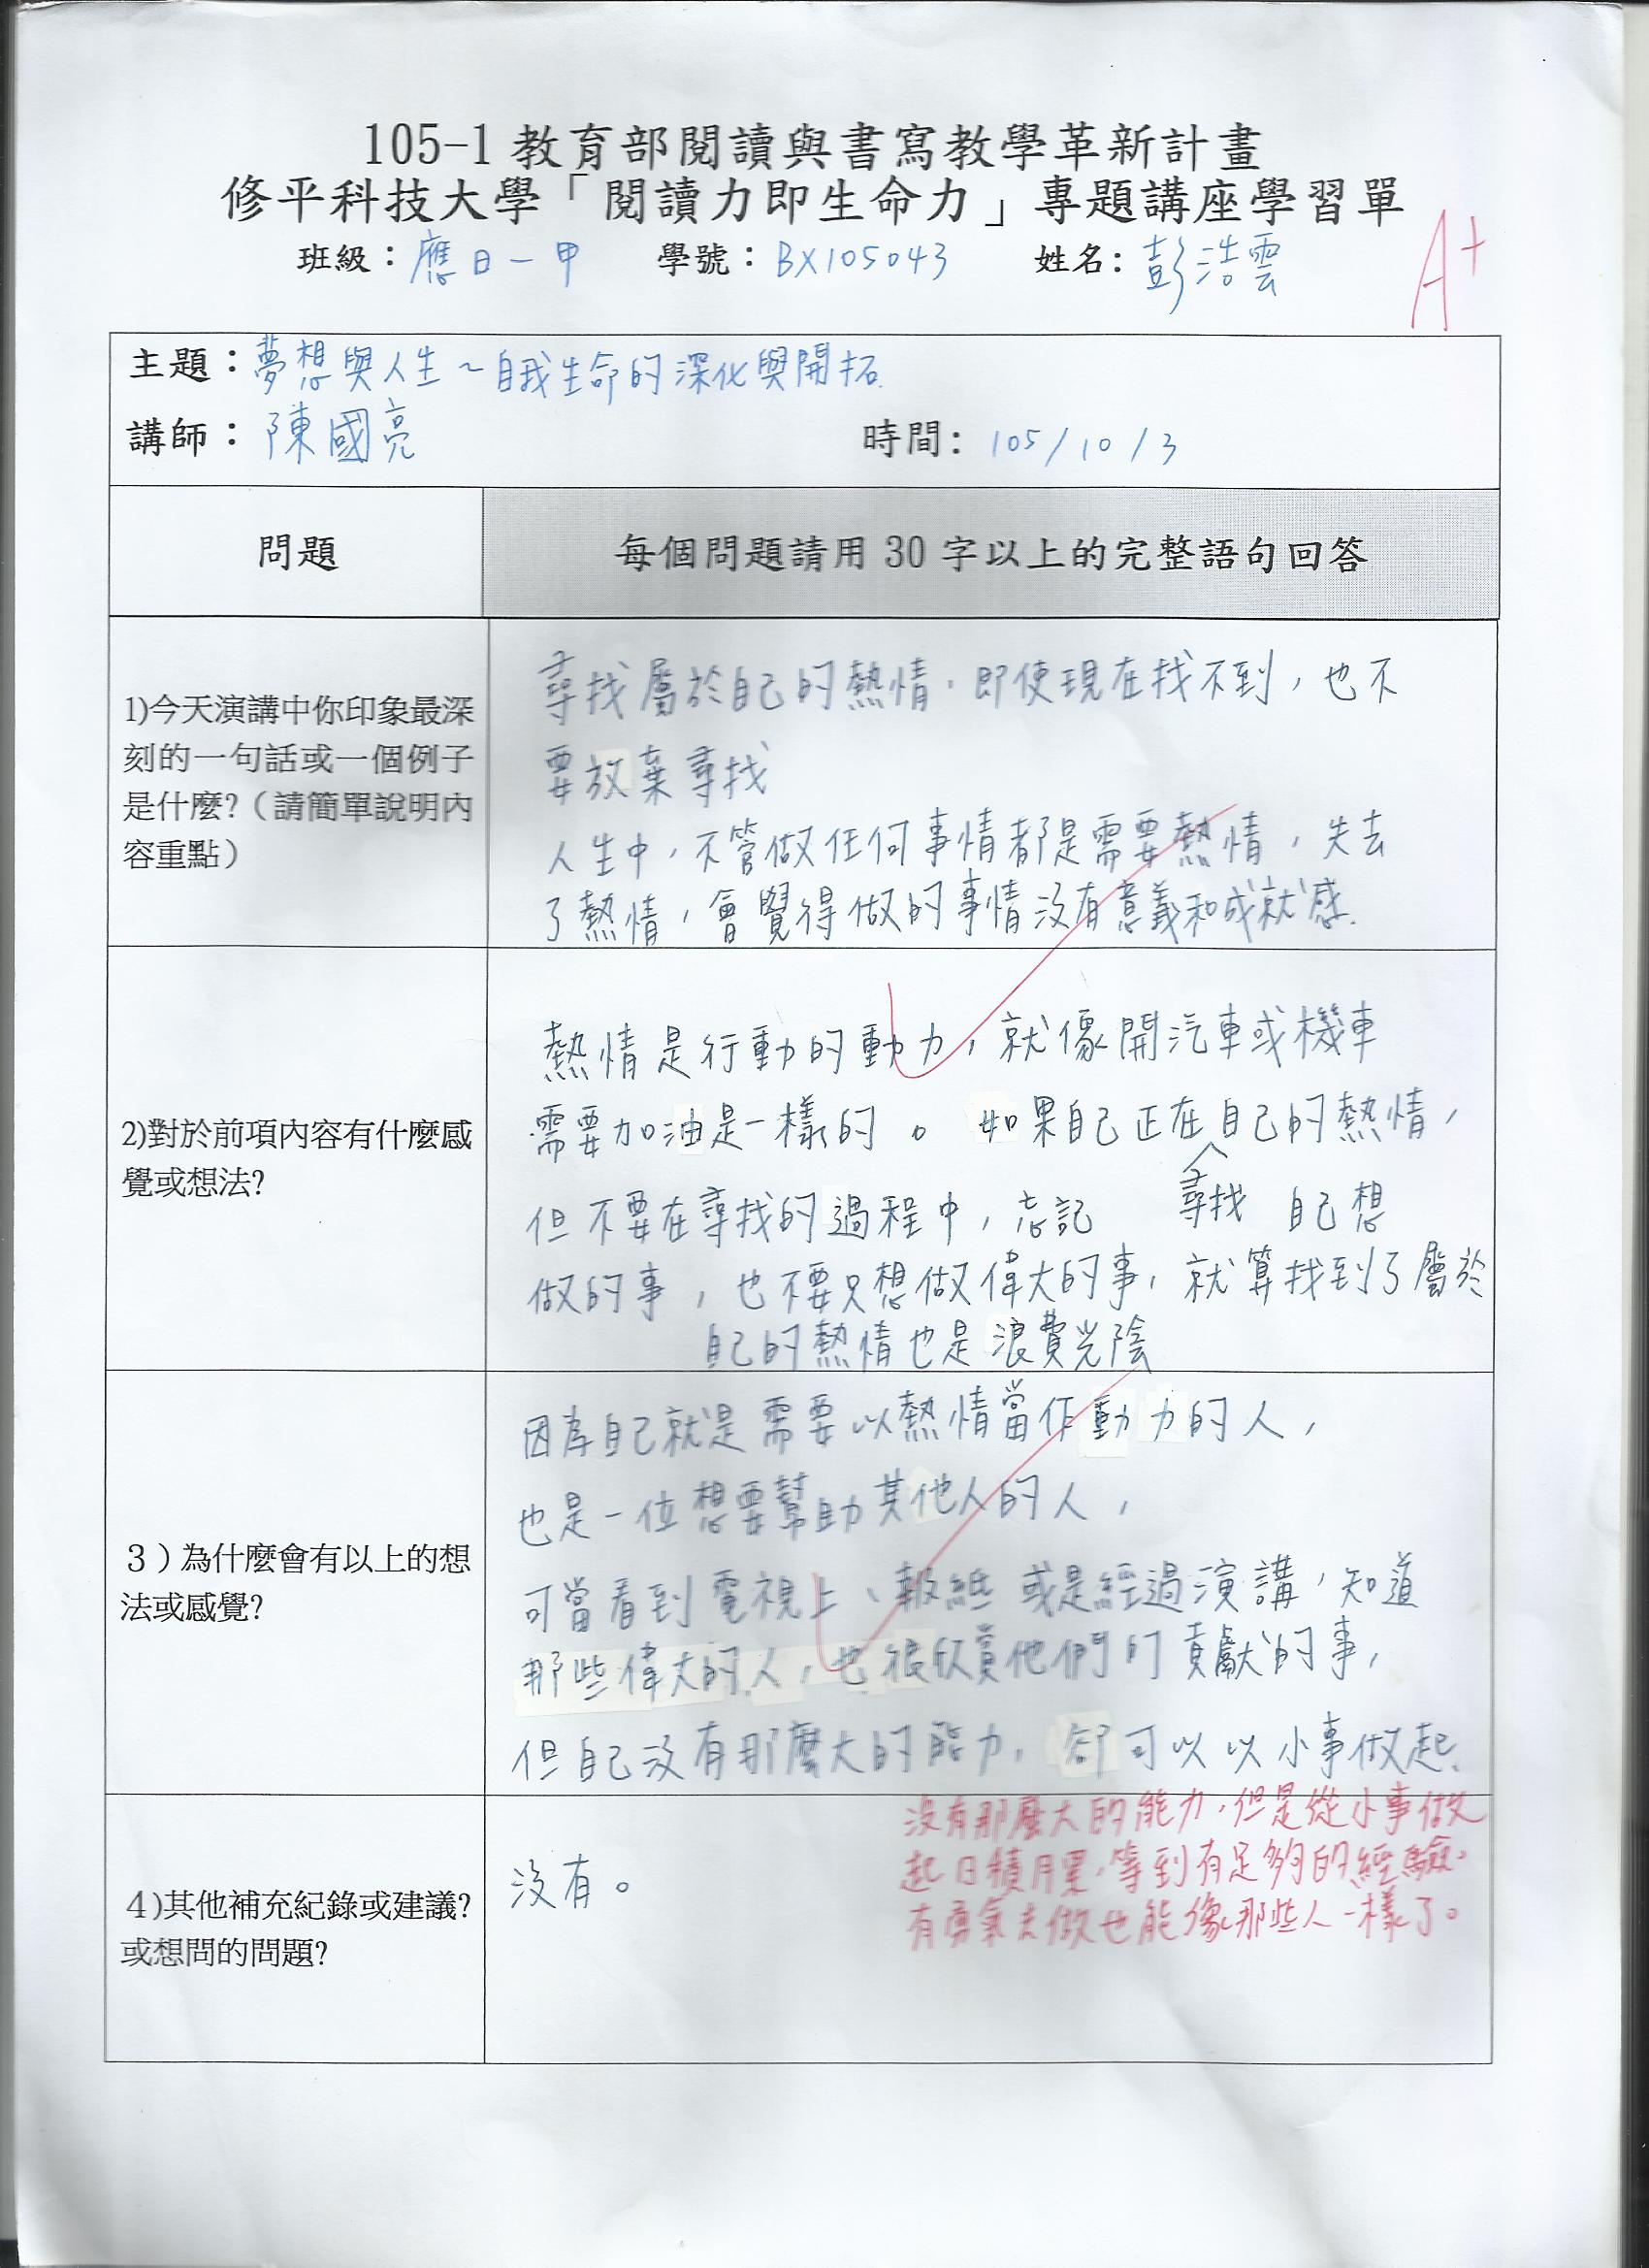 105-1 教育部閱讀與書寫教學革新計畫
修平科技大學「閱讀力即生命力」專題講座學習單
班級：應日一甲 學號：BX105043 姓名：彭浩雲
A+
主題：夢想與人生～自我生命的深化與開拓.
講師：陳國亮 時間：105/10/3
問題 每個問題請用 30 字以上的完整語句回答
1)今天演講中你印象最深
刻的一句話或一個例子
是什麼?（請簡單說明內
容重點）
尋找屬於自己的熱情，即使現在找不到，也不
要放棄尋找
人生中，不管做任何事情都是需要熱情，失去
了熱情，會覺得做的事情沒有意義和成就感.
2)對於前項內容有什麼感
覺或想法?
熱情是行動的動力，就像開汽車或機車
需要加油是一樣的。如果自己正在自己的熱情，
尋找
但不要在尋找的過程中，忘記 自己想
做的事，也不要只想做偉大的事，就算找到了屬於
自己的熱情也是浪費光陰
3）為什麼會有以上的想
法或感覺?
因為自己就是需要以熱情當作動力的人，
也是一位想要幫助其他人的人，
可當看到電視上、報紙或是經過演講，知道
那些偉大的人，也很欣賞他們的貢獻的事，
但自己沒有那麼大的能力，卻可以以小事做起.
4)其他補充紀錄或建議?
或想問的問題?
沒有。
沒有那麼大的能力，但是從小事做
起日積月累，等到有足夠的經驗。
有勇氣去做也能像那些人一樣了。